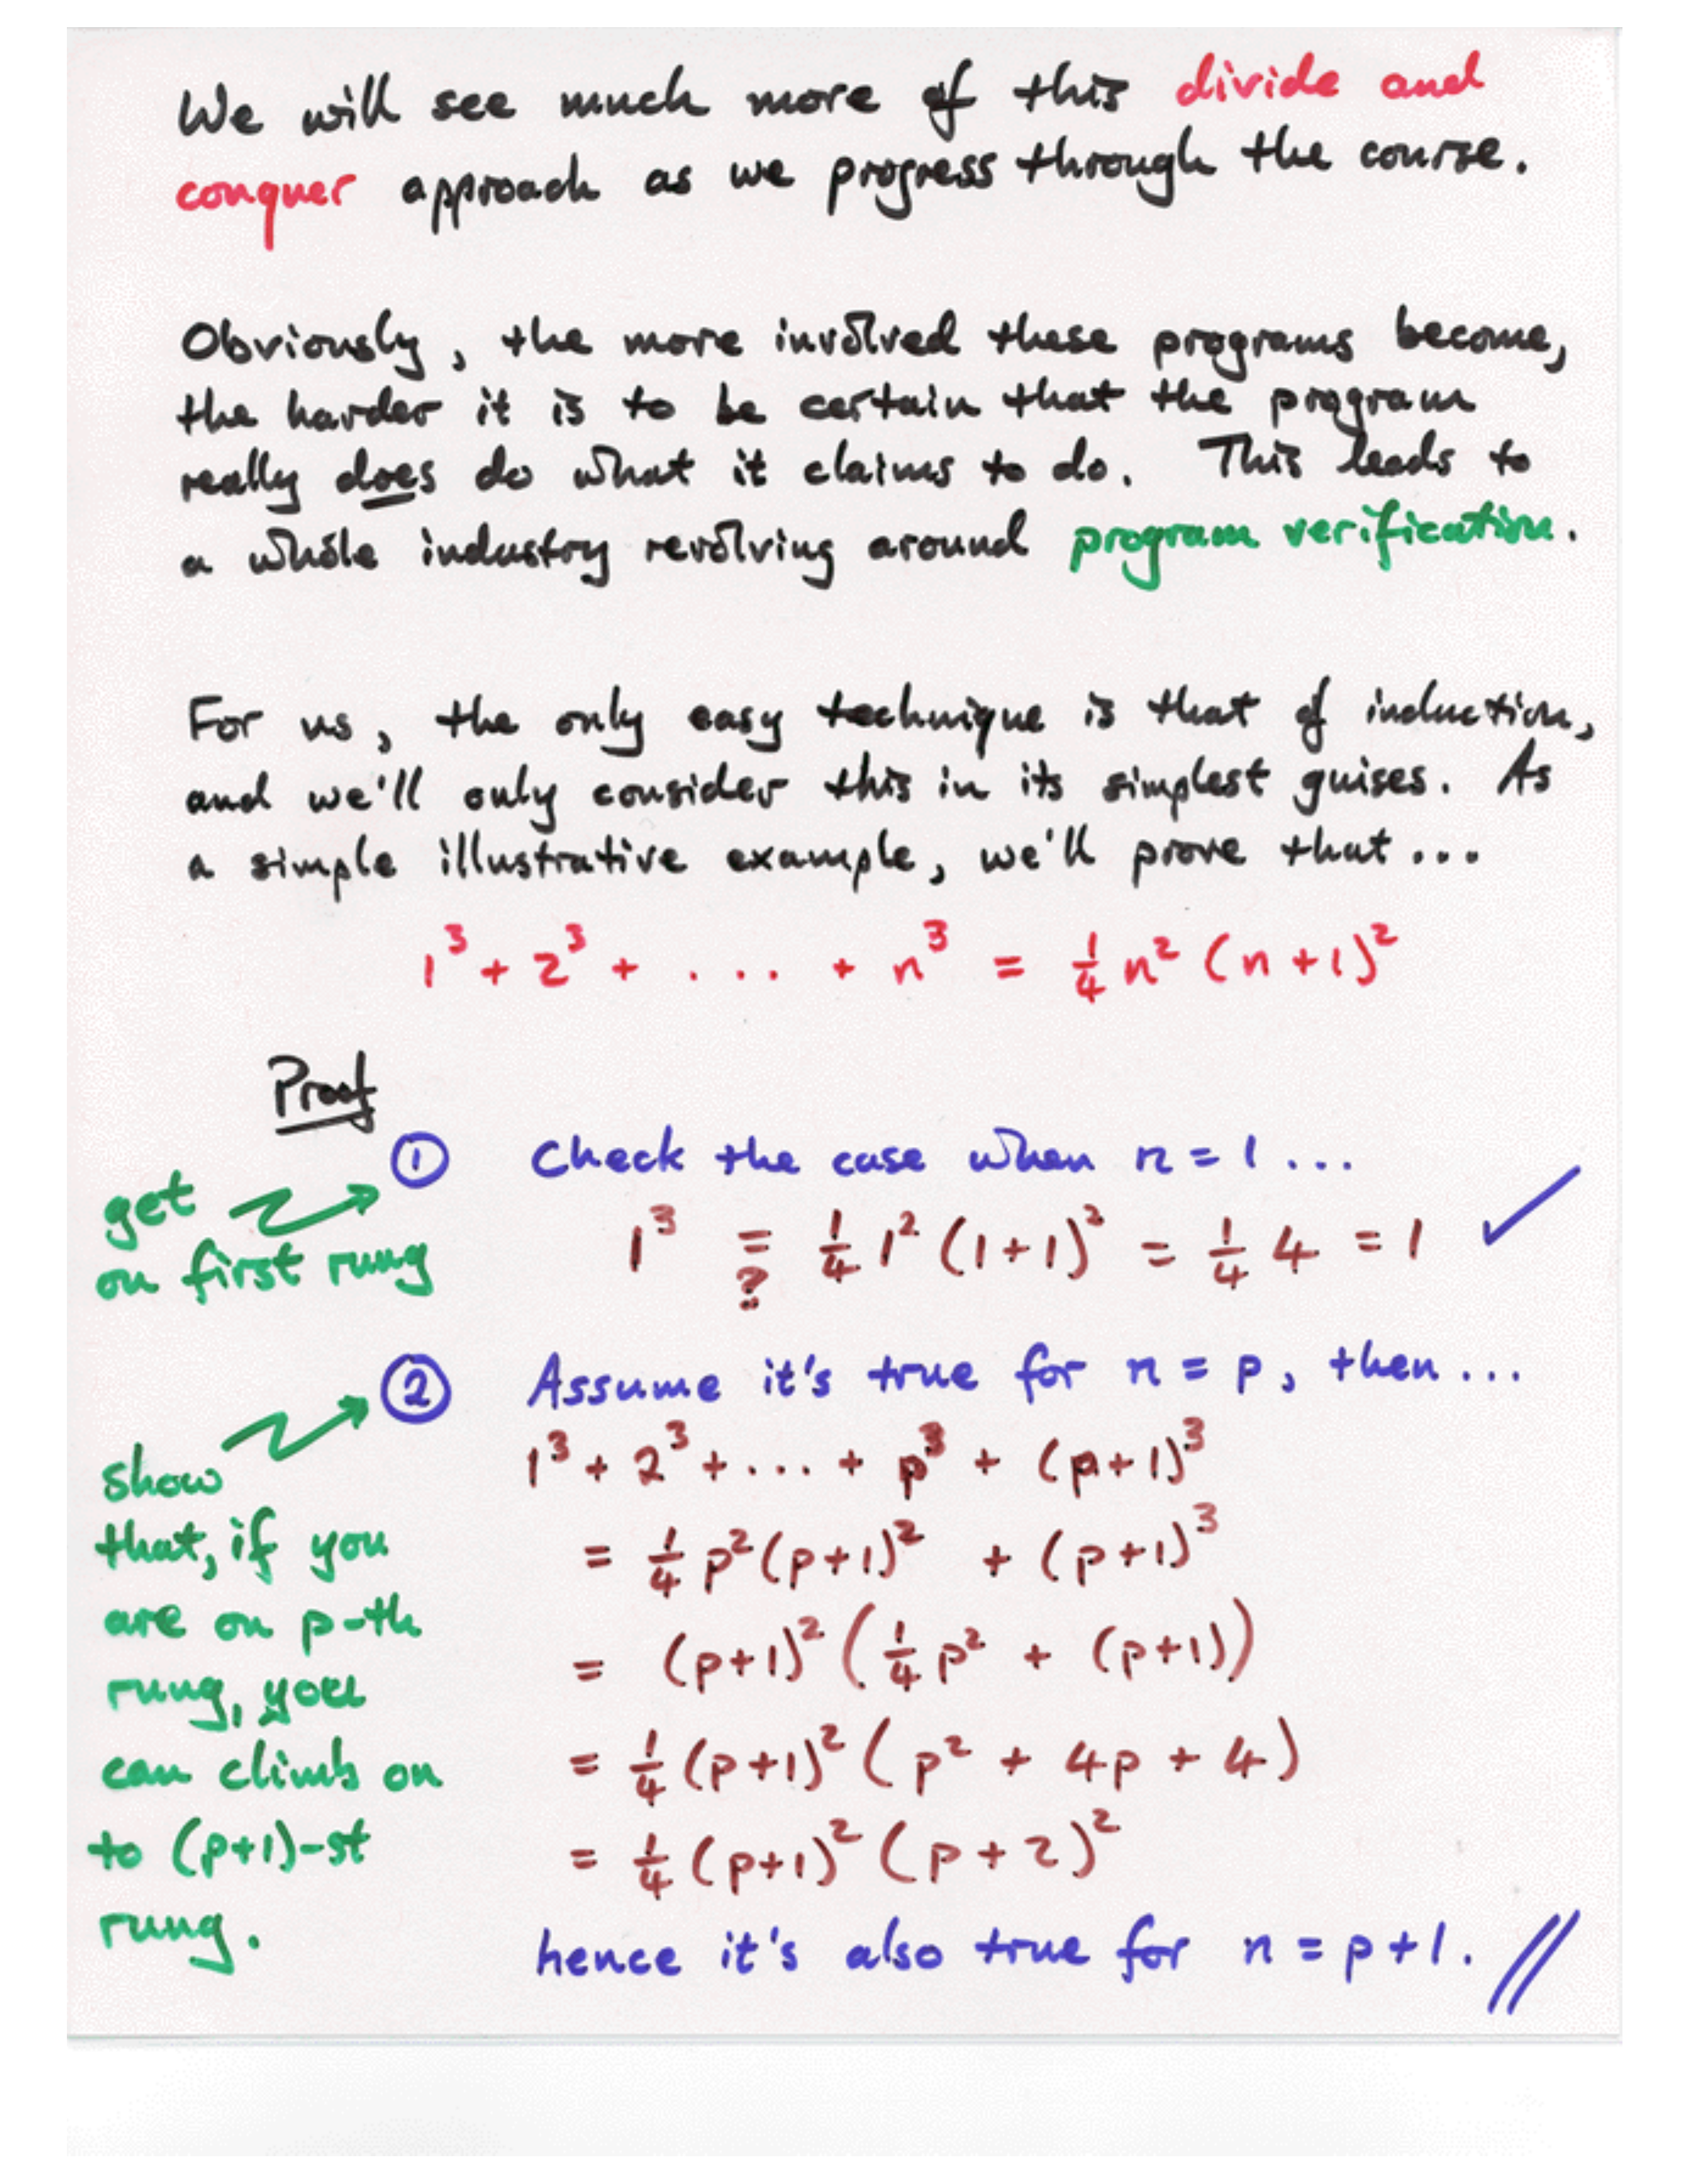 We will see much more of this divide and
conquer approach as we progress through the course.
Obviously, the more involved these programs become,
the harder it is to be certain that the program
really does do what it claims to do. This leads to
a whole industry revolving around program verification.
For us, the only easy technique is that of induction,
and we'll only consider this in its simplest guises. As
a simple illustrative example, we'll prove that...
1³ + 2³ + . ... + n³ = ¼ n² (n+1)²
Proof
① Check the case when n = 1 ...
get
on first rung
1³ =? ¼ 1² (1+1)² = ¼ 4 = 1 ✓
② Assume it's true for n = p, then ...
show
that, if you
are on p-th
rung, you
can climb on
to (p+1)-st
rung.
1³ + 2³ + ... + p³ + (p+1)³
= ¼ p² (p+1)² + (p+1)³
= (p+1)² (¼ p² + (p+1))
= ¼ (p+1)² (p² + 4p + 4)
= ¼ (p+1)² (p+2)²
hence it's also true for n = p+1. //